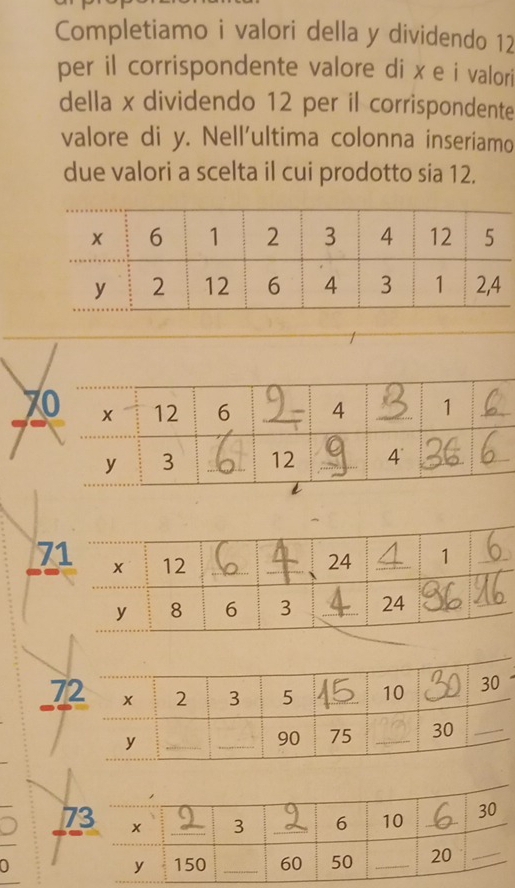 Completiamo i valori della y dividendo 12
per il corrispondente valore di x e i valori
della x dividendo 12 per il corrispondente
valore di y. Nell'ultima colonna inseriamo
due valori a scelta il cui prodotto sia 12.
x 6 1 2 3 4 12 5
y 2 12 6 4 3 1 2,4
70 x 12 6 2 4 3 1 6
y 3 6 12 9 4 36 6
71 x 12 6 4 24 1 1 6
y 8 6 3 4 24 96 16
72 x 2 3 5 15 10 30 30
y 90 75 30
73 x 2 3 2 6 10 6 30
y 150 60 50 20